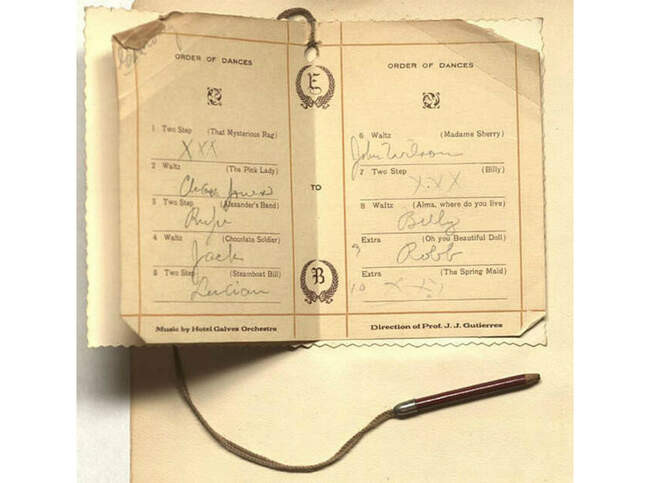 ORDER OF DANCES
1 Two Step (That Mysterious Rag)
XXX
2 Waltz (The Pink Lady)
Jones
3 Two Step (Alexander's Band)
Rufie
4 Waltz (Chocolate Soldier)
Jack
5 Two Step (Steamboat Bill)
Lucian
Music by Hotel Galvez Orchestra
E
TO
B
ORDER OF DANCES
6 Waltz (Madame Sherry)
John Wilson
7 Two Step (Billy)
X.X.X
8 Waltz (Alma, where do you live)
Billy
9 Extra (Oh you Beautiful Doll)
Robb
Extra (The Spring Maid)
10 X X
Direction of Prof. J. J. Gutierres